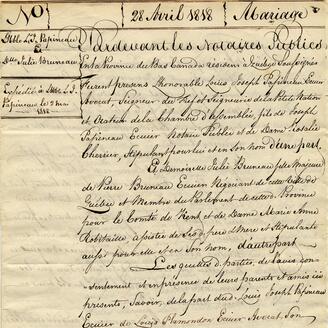 No
28 Avril 1818
Mariage
L.J. Papineau
&
Dlle Julie Bruneau
Expédié à L.J.
Papineau le 2 mai
1818
Pardevant les Notaires Publics
en la Province du Bas Canada résident à Québec Soussignés
Furent présens l'honorable Louis Joseph Papineau Ecuier
Avocat, Seigneur du Fief et Seigneurie de la Petite Nation
et Orateur de la Chambre d'Assemblée, fils de Joseph
Papineau Ecuier Notaire Public et de Dame Rosalie
Cherrier, stipulant pour lui et en son nom d'une part.
Et Damoiselle Julie Bruneau fille Majeure
de Pierre Bruneau Ecuier Négociant de cette Ville de
Québec et Membre du Parlement de cette Province
pour le Comté de Kent, et de Dame Marie Anne
Robitaille, assistée de ses père et mère et stipulante
aussi pour elle et en son nom, d'autre part.
Lesquelles parties, de l'avis con-
sentement et en présence de leurs parents et amis ici
présents, Savoir, de la part du Louis Joseph Papineau
Ecuier de Louis Plamondon Ecuier Avocat son